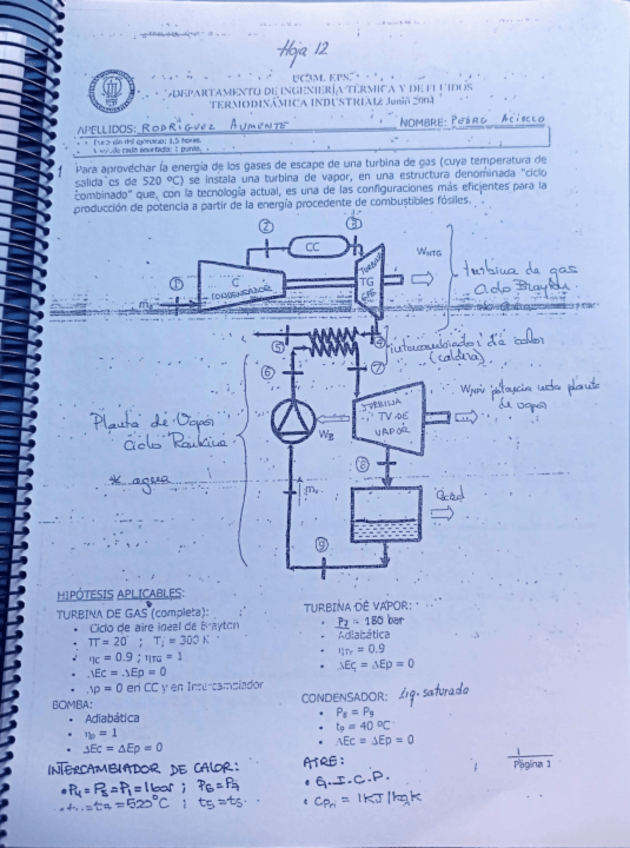 Hoja 12
UCQM. EPS.
DEPARTAMENTO DE INGENIERÍA TÉRMICA Y DE FLUIDOS
TERMODINÁMICA INDUSTRIAL: Junio 2004
APELLIDOS: RODRÍGUEZ AUMENTE NOMBRE: PEDRO ACISCLO
1 Para aprovechar la energía de los gases de escape de una turbina de gas (cuya temperatura de
salida es de 520 ºC) se instala una turbina de vapor, en una estructura denominada "ciclo
combinado" que, con la tecnología actual, es una de las configuraciones más eficientes para la
producción de potencia a partir de la energía procedente de combustibles fósiles.
2
CC
3
WNTG
1
C
CONDENSADOR
TURBINA
TG
turbina de gas
ciclo Brayton
5
4
intercambiador de calor
(caldera)
6
7
Planta de Vapor
Ciclo Rankine
* agua
WB
TURBINA
TV DE
VAPOR
potencia neta planta
de vapor
8
9
HIPÓTESIS APLICABLES:
TURBINA DE GAS (completa):
• Ciclo de aire ideal de Brayton
• π = 20 ; T1 = 300 K
• ηC = 0.9 ; ηTG = 1
• ΔEc = ΔEp = 0
• Δp = 0 en CC y en Intercambiador
BOMBA:
• Adiabática
• ηB = 1
• ΔEc = ΔEp = 0
INTERCAMBIADOR DE CALOR:
• P4 = P5 = P1 = 1 bar ; P6 = P7
= 520ºC ;
TURBINA DE VAPOR:
• P7 = 180 bar
• Adiabática
• ηTV = 0.9
• ΔEc = ΔEp = 0
CONDENSADOR: Liq. saturado
• P8 = P9
• t9 = 40 ºC
• ΔEc = ΔEp = 0
AIRE:
• G.I.C.P.
• = 1 KJ/KgK
Página 1